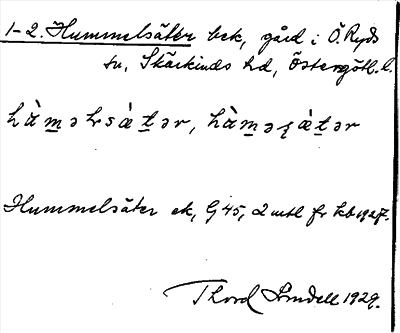 1-2. Hummelsäter bek, gård i Ö. Ryds
sn, Skärkinds hd, Östergötl. l.
hàməlsátər, hàməʂátər
Hummelsäter ek, G 45, 2 mtl fr kb 1927.
Thord Lindell 1929.